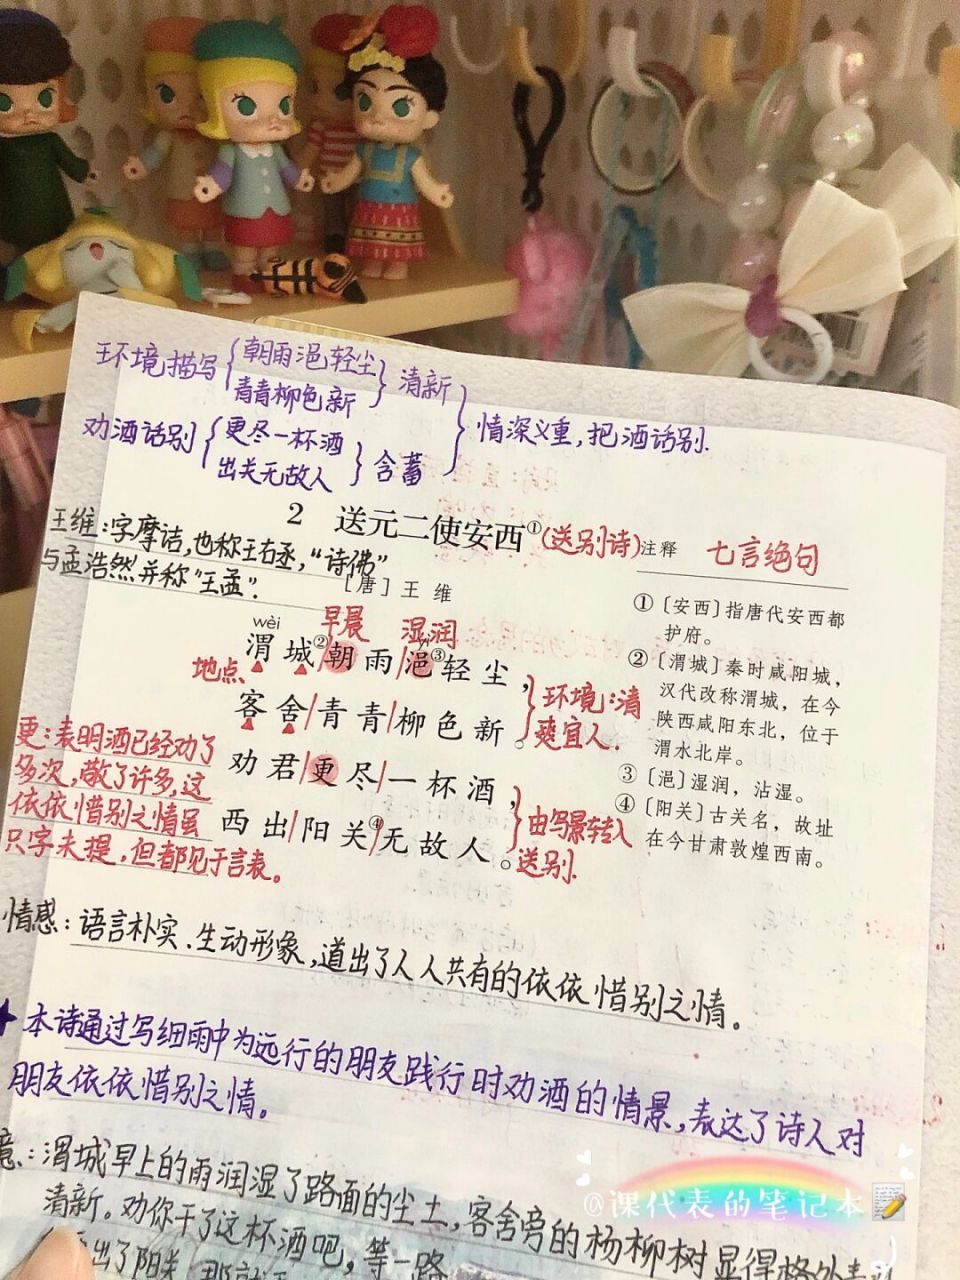 环境描写{朝雨浥轻尘
青青柳色新}清新
劝酒话别{更尽一杯酒
出关无故人}含蓄
}情深义重,把酒话别.
2 送元二使安西①(送别诗)
王维:字摩诘,也称王右丞,“诗佛”
与孟浩然并称“王孟”.
[唐]王维
注释 七言绝句
wèi 早晨 湿润 yì
渭城②朝雨/浥③轻尘,
地点
客舍/青青/柳色新。
}环境:清
爽宜人.
劝君/更尽/一杯酒,
西出/阳关④/无故人。
}由写景转入
送别.
更:表明酒已经劝了
多次,敬了许多,这
依依惜别之情虽
只字未提,但都见于言表。
①〔安西〕指唐代安西都
护府。
②〔渭城〕秦时咸阳城,
汉代改称渭城,在今
陕西咸阳东北,位于
渭水北岸。
③〔浥〕湿润,沾湿。
④〔阳关〕古关名,故址
在今甘肃敦煌西南。
情感:语言朴实.生动形象,道出了人人共有的依依惜别之情。
本诗通过写细雨中为远行的朋友践行时劝酒的情景,表达了诗人对
朋友依依惜别之情。
意:渭城早上的雨润湿了路面的尘土,客舍旁的杨柳树显得格外青
清新。劝你干了这杯酒吧,等一路
出了阳关
@课代表的笔记本